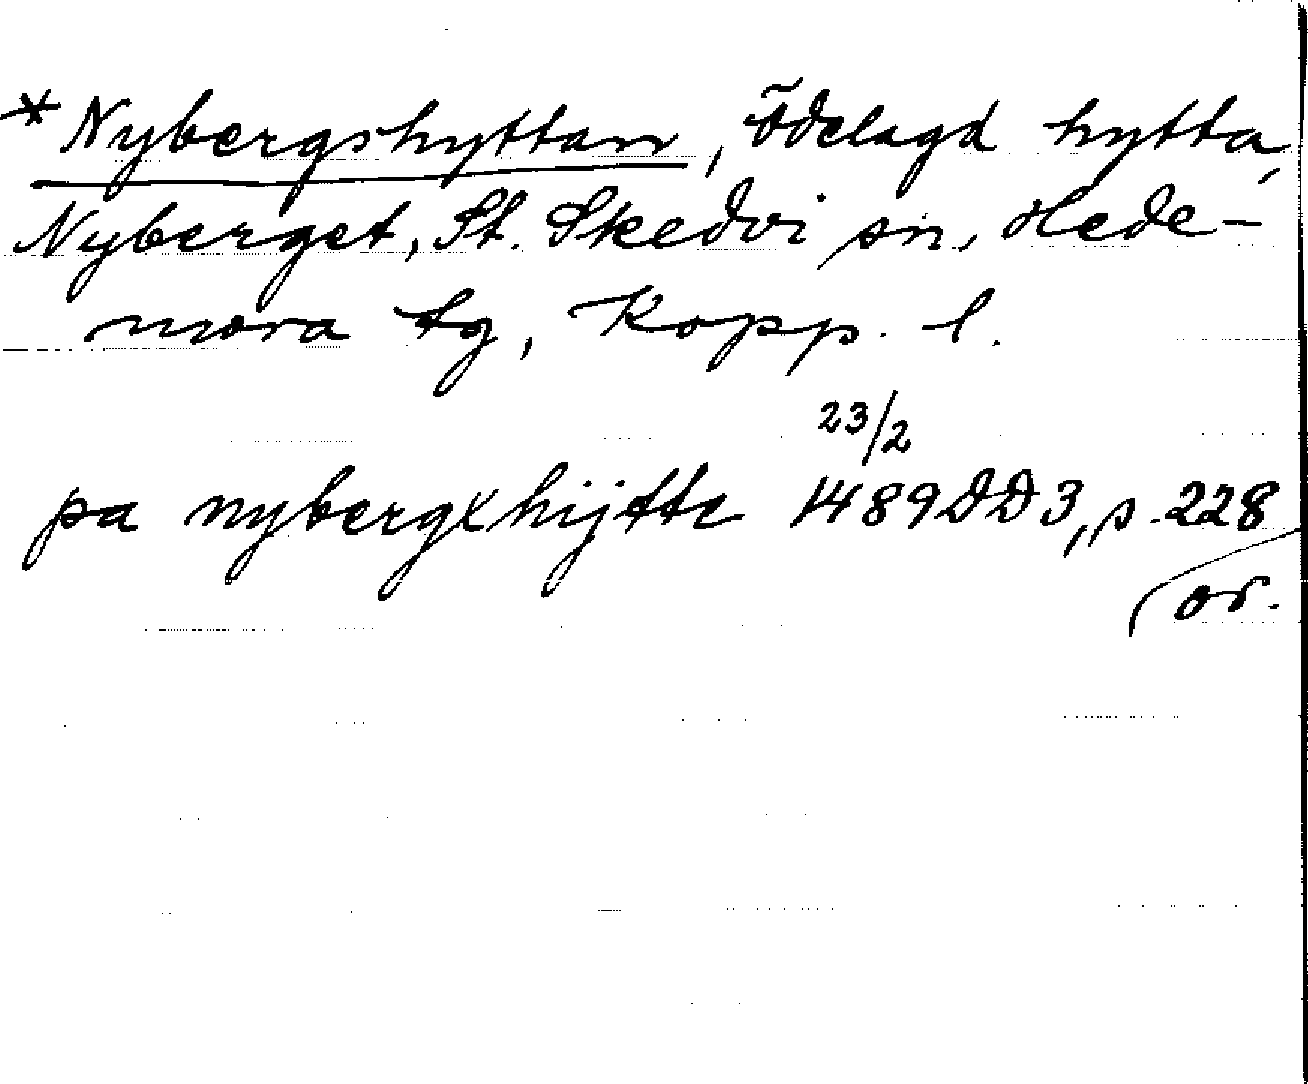 *Nybergshyttan, ödelagd hytta,
Nyberget, St. Skedvi sn, Hede-
mora tg, Kopp. l.
23/2
pa nybergx hijtte 1489 DD 3, s. 228
or.